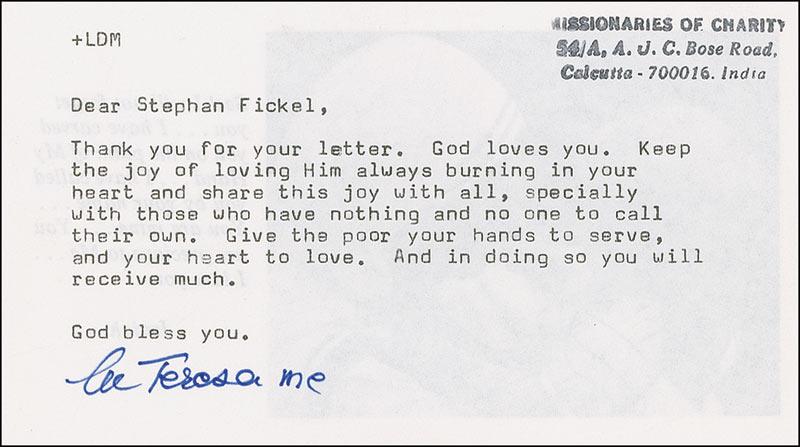 +LDM
MISSIONARIES OF CHARITY
54/A, A. J. C. Bose Road,
Calcutta - 700016. India
Dear Stephan Fickel,
Thank you for your letter. God loves you. Keep
the joy of loving Him always burning in your
heart and share this joy with all, specially
with those who have nothing and no one to call
their own. Give the poor your hands to serve,
and your heart to love. And in doing so you will
receive much.
God bless you.
Teresa mc